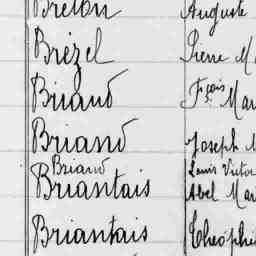 Breton Auguste
Brézel Pierre M
Briand Fçois Mar
Briand Joseph M
Briand Louis Victor
Briantais Abel Mar
Briantais Théophi